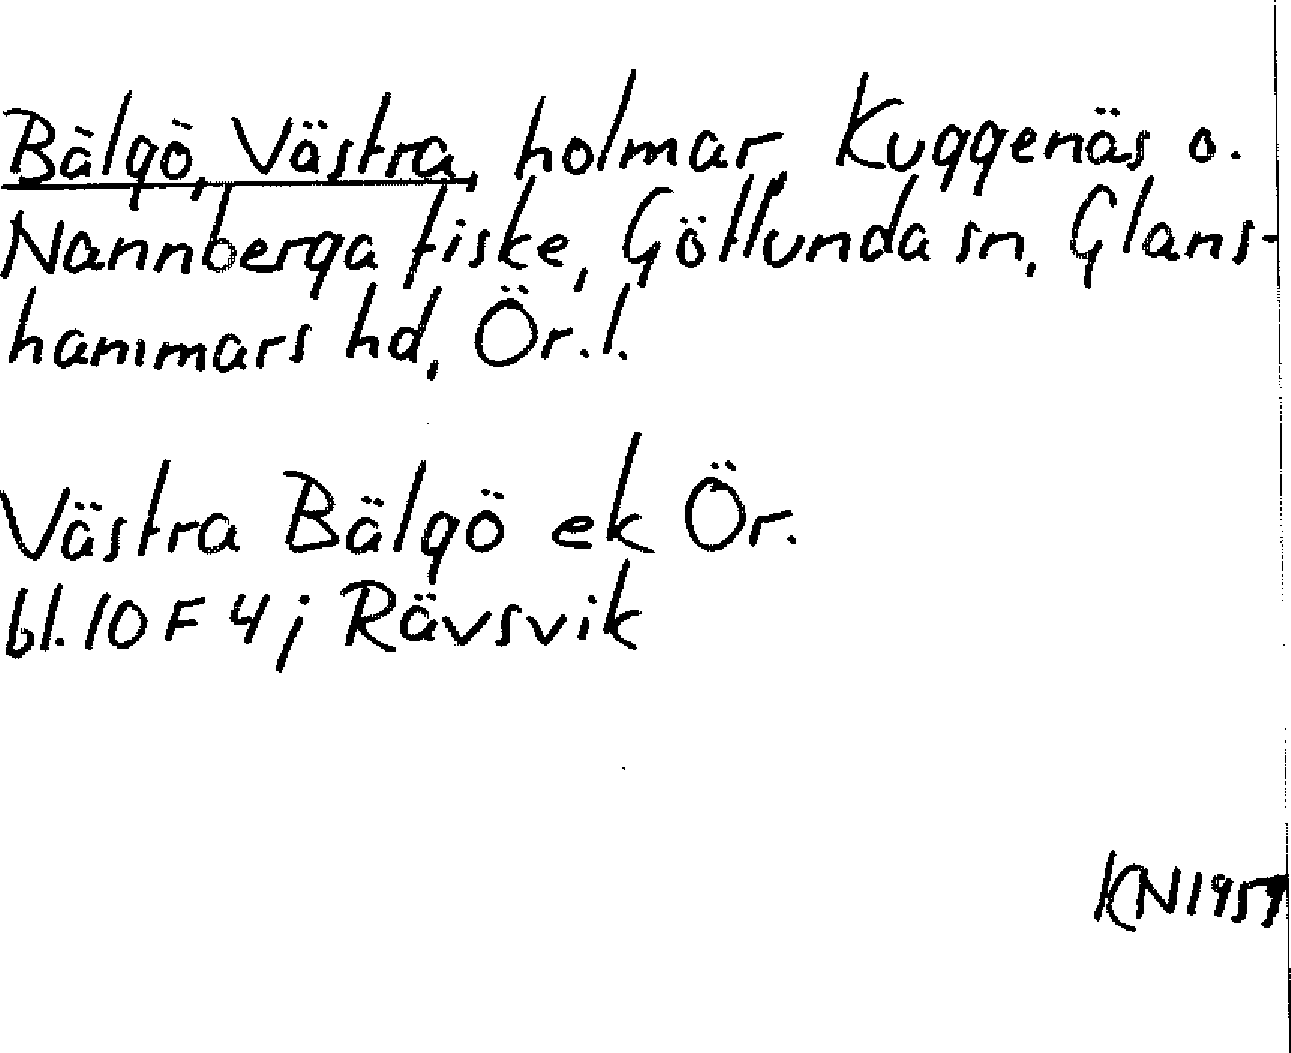 Bälgö, Västra, holmar, Kuggenäs o.
Nannberga fiske, Götlunda sn, Glans-
hammars hd, Ör.l.
Västra Bälgö ek Ör.
bl. 10 F 4 j Rävsvik
KN 1959